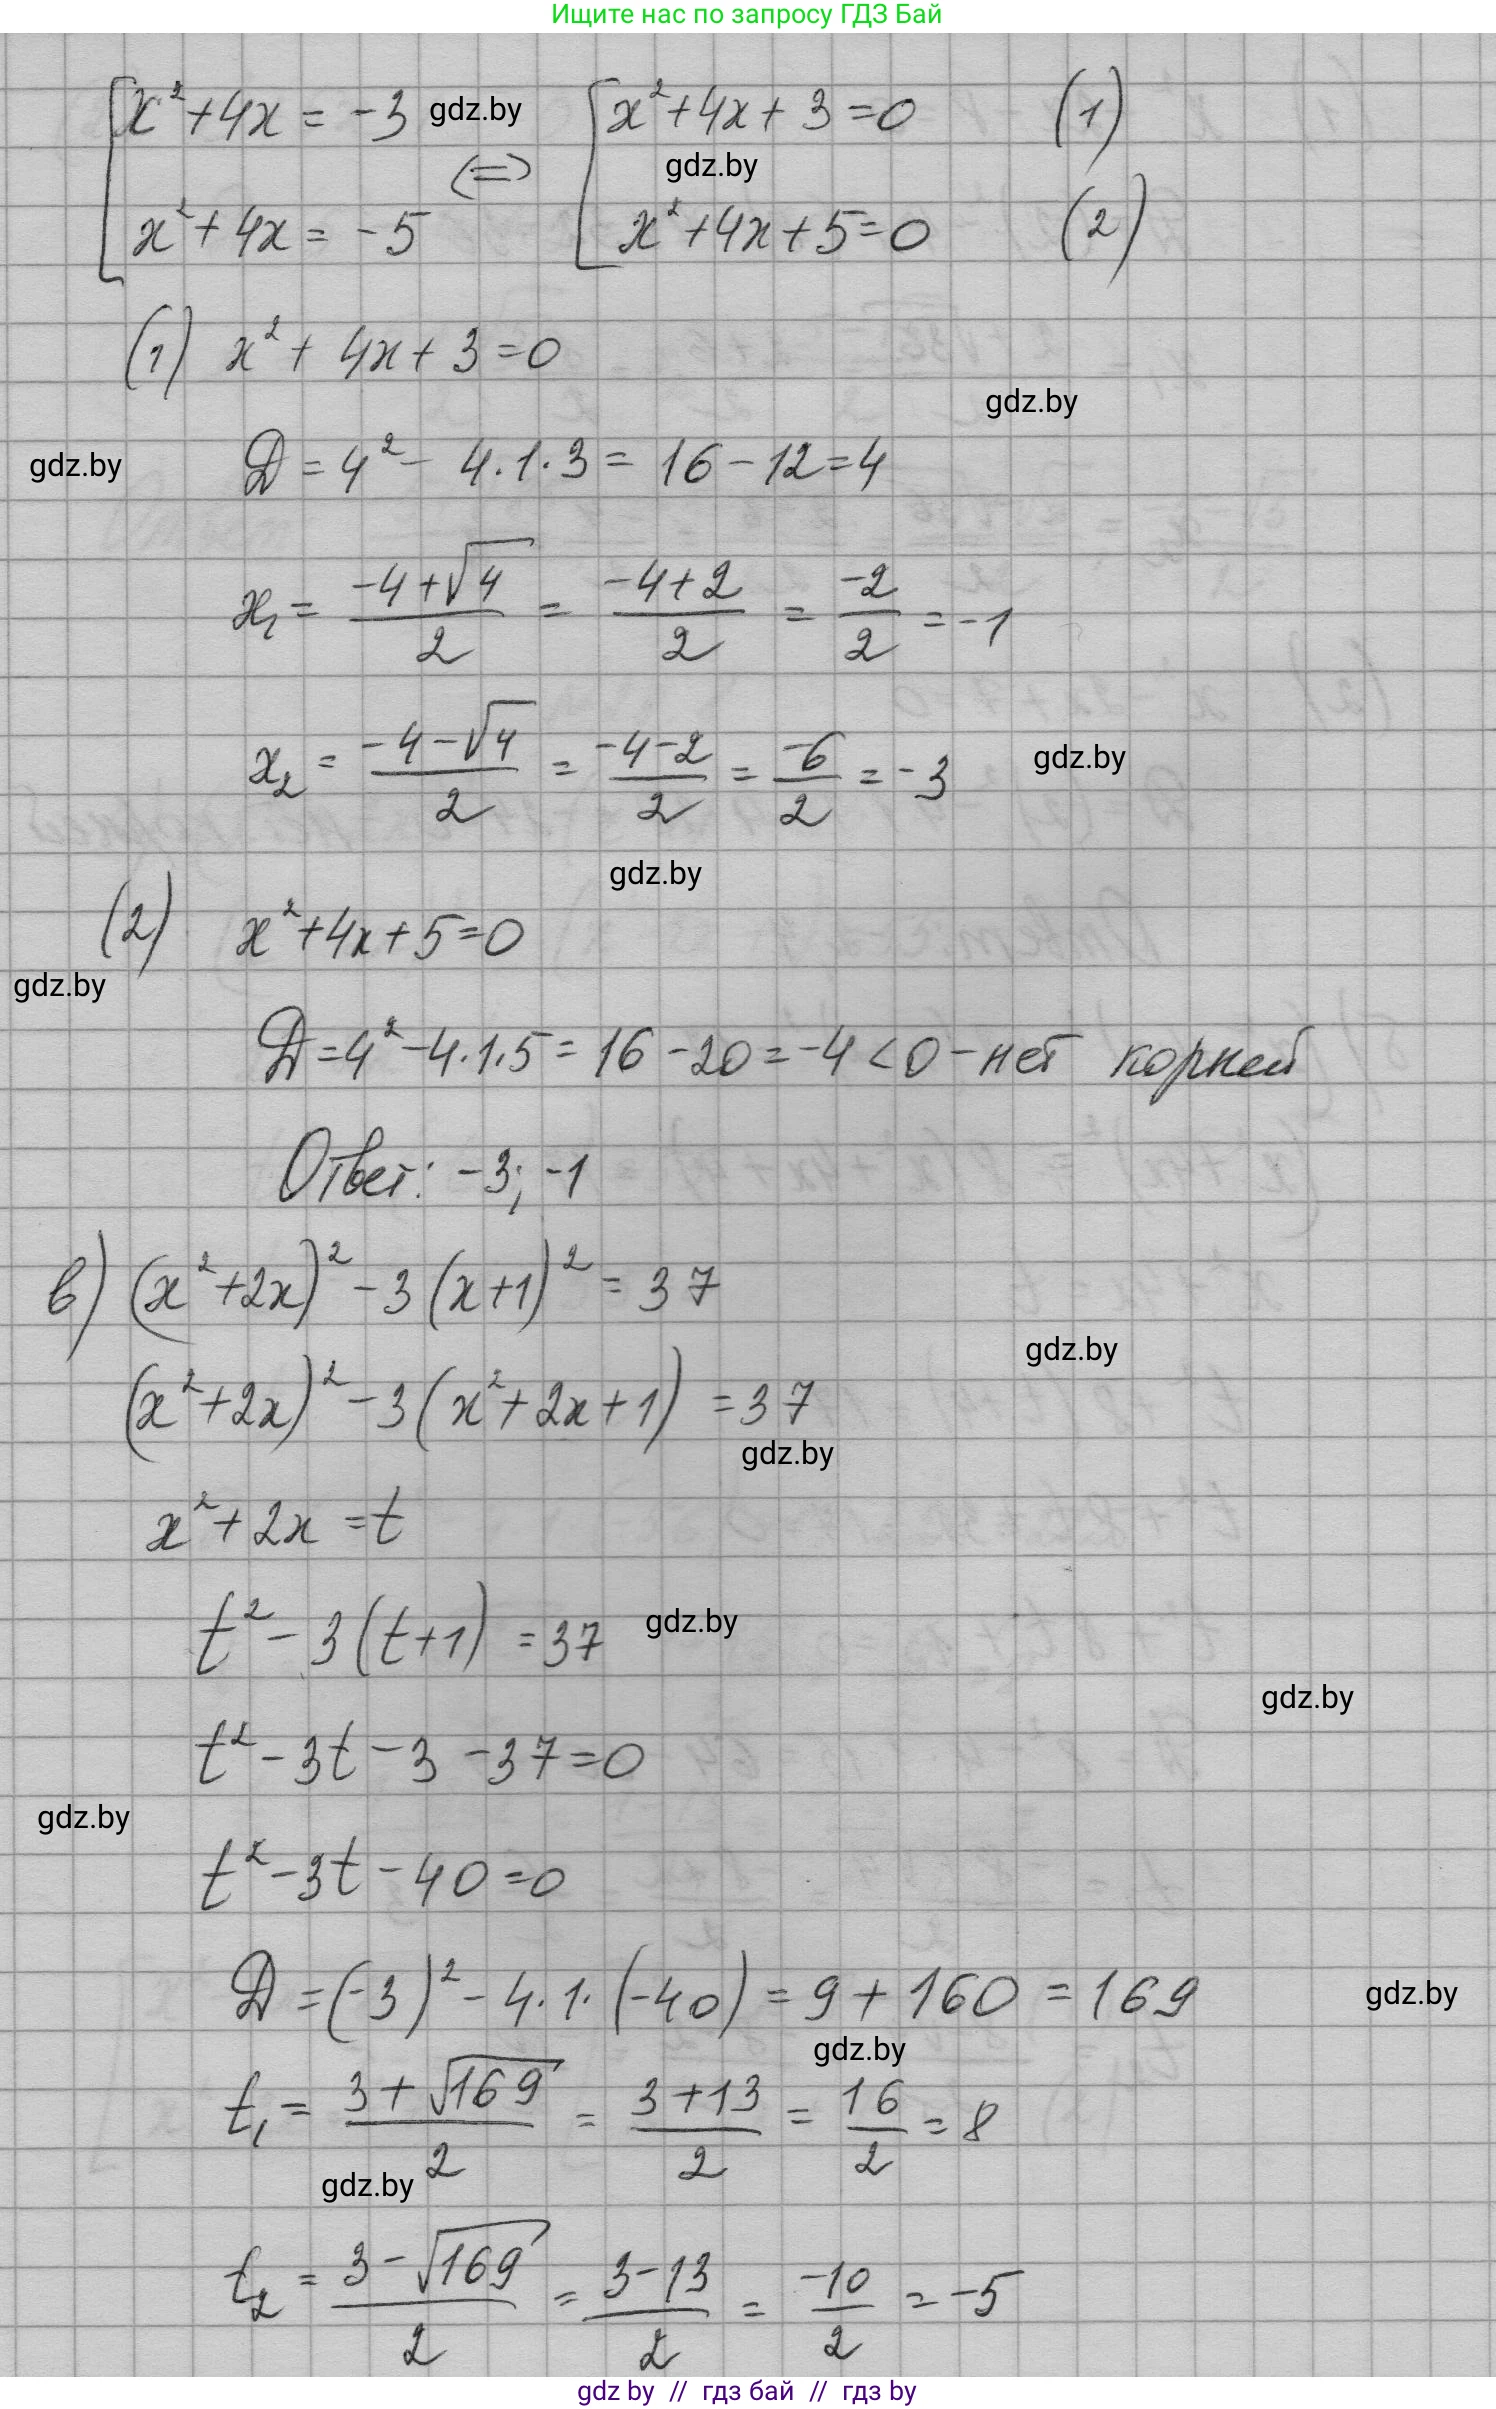 Ищите нас по запросу ГДЗ Бай
x² + 4x = -3 gdz.by x² + 4x + 3 = 0 (1)
<=> gdz.by
x² + 4x = -5 x² + 4x + 5 = 0 (2)
(1) x² + 4x + 3 = 0
gdz.by
gdz.by D = 4² - 4·1·3 = 16 - 12 = 4
x₁ = (-4+√4)/2 = (-4+2)/2 = -2/2 = -1
x₂ = (-4-√4)/2 = (-4-2)/2 = -6/2 = -3 gdz.by
gdz.by
(2) x² + 4x + 5 = 0
gdz.by
D = 4² - 4·1·5 = 16 - 20 = -4 < 0 - нет корней
Ответ: -3; -1
в) (x² + 2x)² - 3(x+1)² = 37
gdz.by
(x² + 2x)² - 3(x² + 2x + 1) = 37
gdz.by
x² + 2x = t
t² - 3(t+1) = 37 gdz.by
gdz.by
t² - 3t - 3 - 37 = 0
gdz.by
t² - 3t - 40 = 0
D = (-3)² - 4·1·(-40) = 9 + 160 = 169 gdz.by
gdz.by
t₁ = (3+√169)/2 = (3+13)/2 = 16/2 = 8
gdz.by
t₂ = (3-√169)/2 = (3-13)/2 = -10/2 = -5
gdz by // гдз бай // гдз by